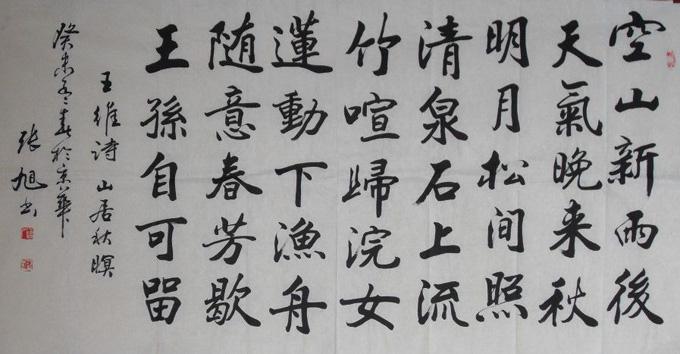 空山新雨後
天氣晚来秋
明月松间照
清泉石上流
竹喧歸浣女
蓮動下漁舟
随意春芳歇
王孫自可留
王維詩 山居秋暝
癸未年之春於京華
張旭书